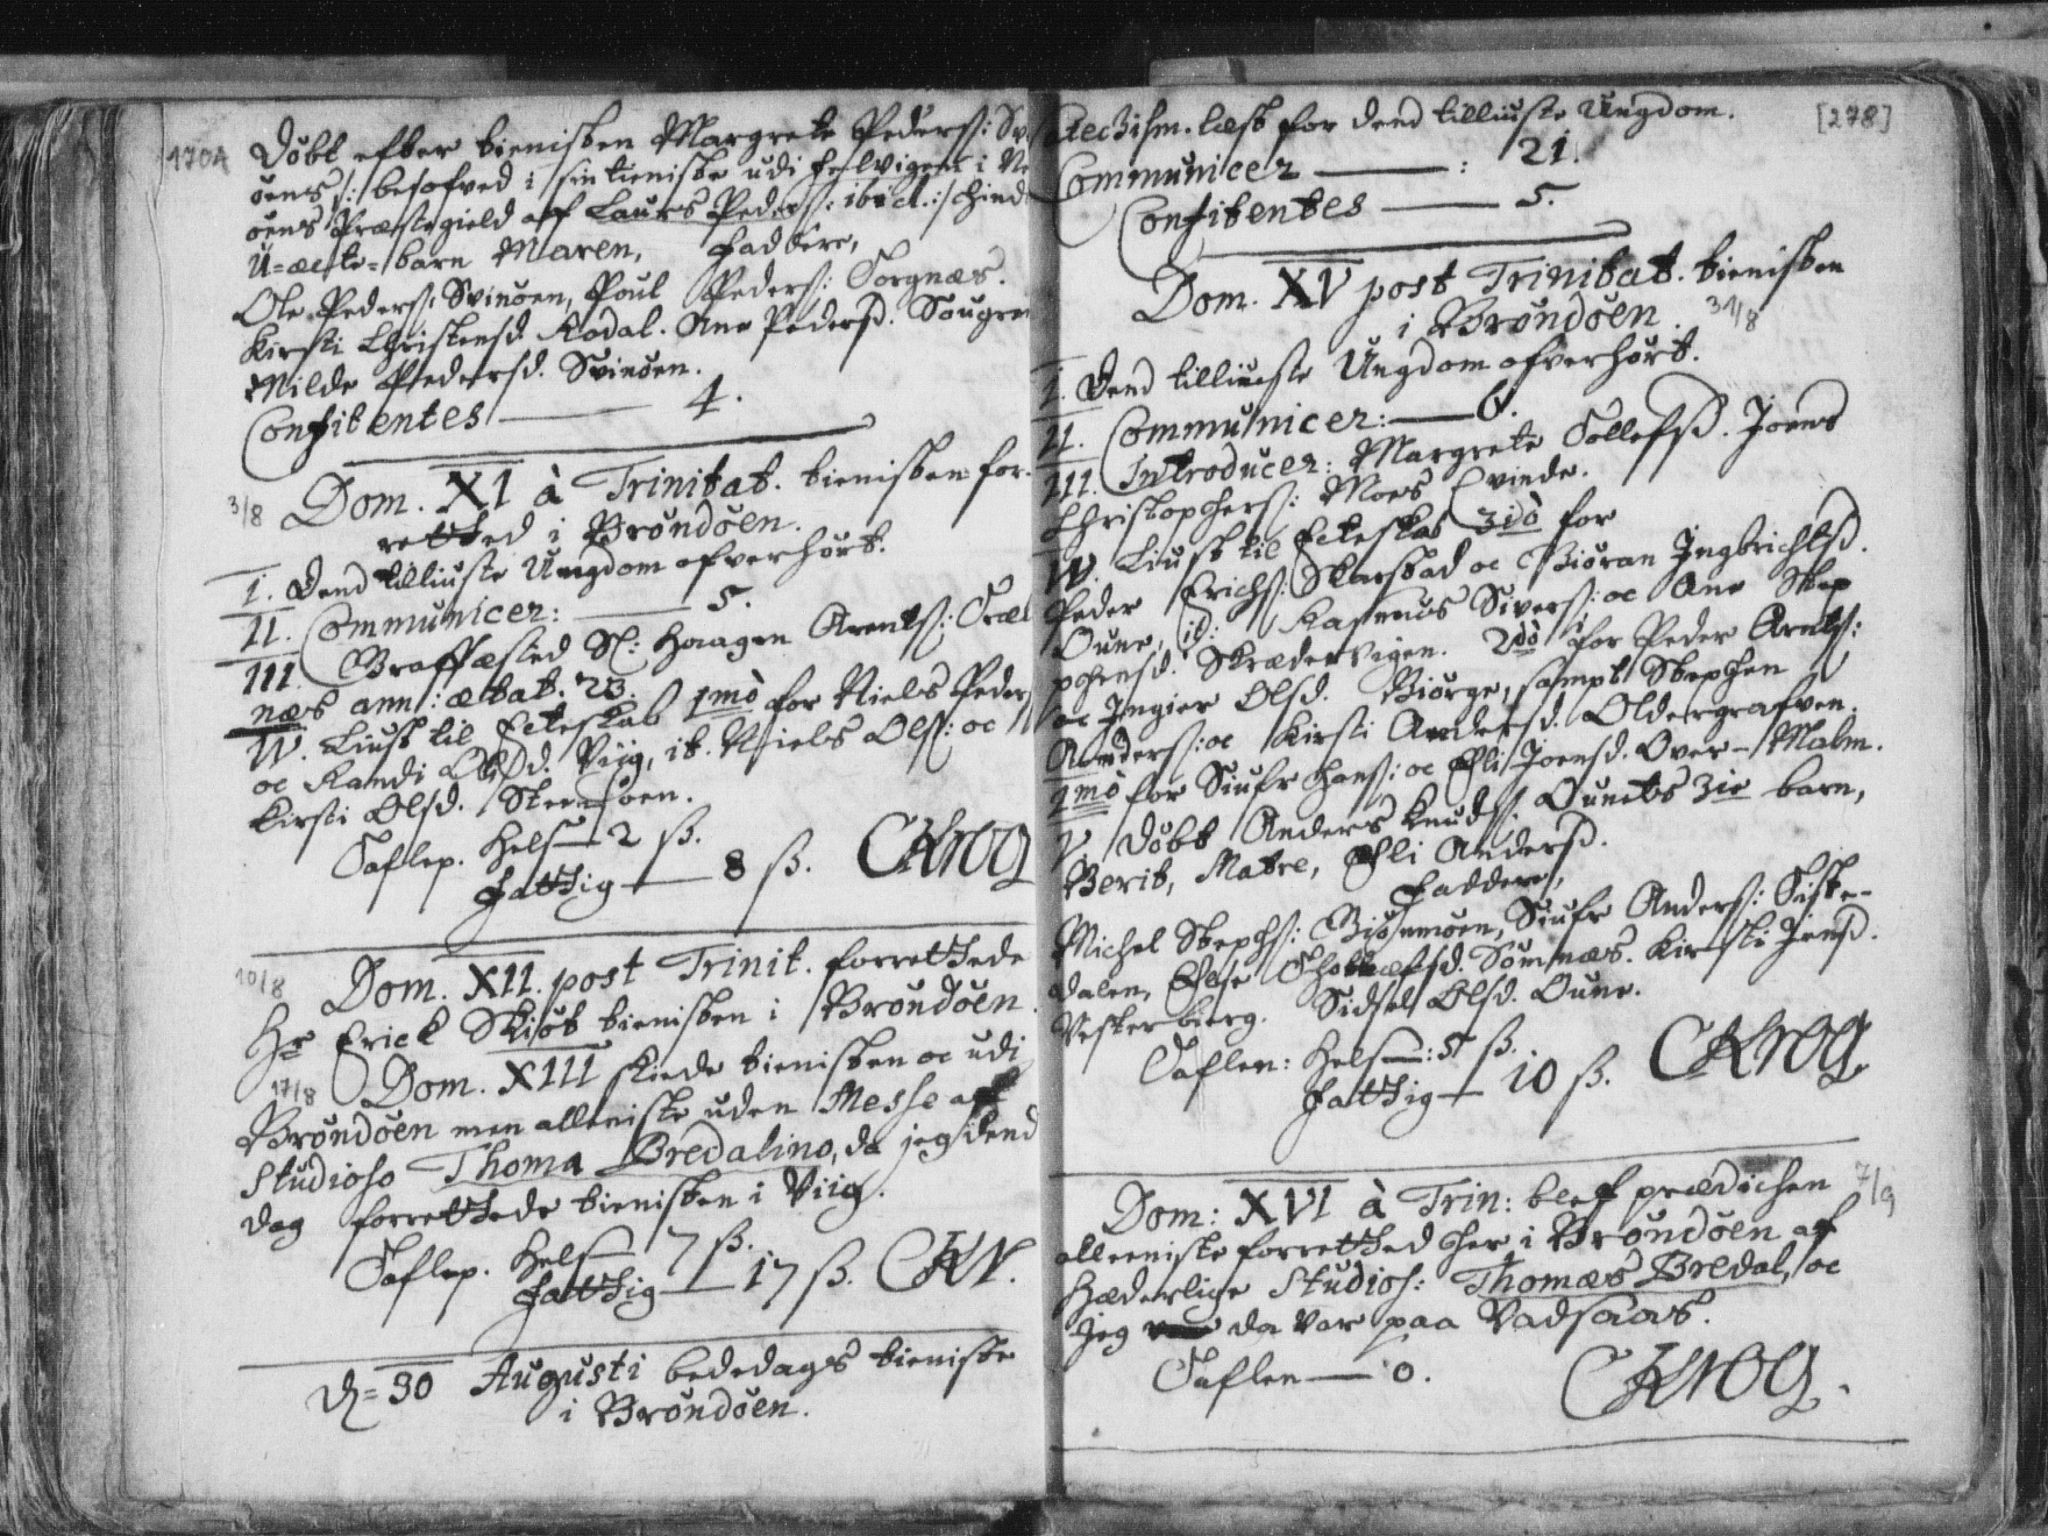 1704
Døbt efter tienisten Margrete Peders: Svi
øens /: besofved i sin tieniste udi Helvigen i Ne
øens Præstegield aff Laurs Peders: ibid.:/ hind
U=æcte=barn Maren, Faddere,
Ole Peders: Svinøen, Poul Peders: Torgnæs.
Kirsti Christensd. Kodal. Ane Pedersd. Sougre
Milde Pedersd. Svinøen.
Confitentes 4.
3/8 Dom. XI à Trinitat. tienisten for-
retted i Brøndøen.
I. Dend tilliuste Ungdom ofverhørt.
II. Communicer: 5.
III. Graffæsted Sl: Haagen Arents: Træl
næs ann: ætat. 23.
IV. Liust til Ecteskab 1mò for Niels Peders
oc Randi Olsd. Viig, it. Niels Ols: oc
Kirsti Olsd. Steensøen.
Taflep. Hels 2 ß.
Fattig 8 ß. CKrog
10/8 Dom. XII. post Trinit. forrettede
Hr Erick Skiøt tienisten i Brøndøen.
17/8 Dom. XIII skiede tienisten oc udi
Brøndøen men alleniste uden Messe aff
Studioso Thoma Bredalino, da jeg dend
dag forrettede tienisten i Viig.
Taflep. Hels 7 ß.
Fattig 17 ß. CKN.
D= 30 Augusti bededags tieniste
i Brøndøen.
[278]
techism. læst for dend tilliuste Ungdom.
Communicer : 21.
Confitentes 5.
Dom. XV post Trinitat. tienisten
i Brøndøen. 31/8
I. Dend tilliuste Ungdom ofverhørt.
II. Communicer: 6.
III. Introducer: Margrete Tollefsd. Joens
Christophers: Moes Qvinde.
IV. Liust til Ecteskab 3iò for
Peder Erichs: Skarstad oc Giøran Ingbrichtsd.
Oune, it: Rasmus Sivers: oc Ane Step
phensd. Skrædervigen. 2dò for Peder Arnts:
oc Ingier Olsd. Biørge, sampt Stephen
Anders: oc Kirsti Andersd. Oldergrafven.
1mò for Siufr Hans: oc Eli Joensd. Over-Malm.
V. Døbt Anders Knuds: Ounets 3ie barn,
Berit, Matre, Eli Andersd.
Faddere,
Michel Stephs: Biønmoen, Siufr Anders: Tiske-
dalen, Else Tholleifsd. Sømnæs. Kirsti Jensd.
Vesterbierg. Sidsel Olsd. Oune.
Taflen: Hels: 5 ß.
Fattig 10 ß. CKrog.
Dom: XVI à Trin: bleff prædichen 7/9
alleeniste forretted her i Brøndøen af
Hæderlige Studios: Thomæs Bredal, oc
Jeg da var paa Vadsaas.
Taflen 0. CKrog.